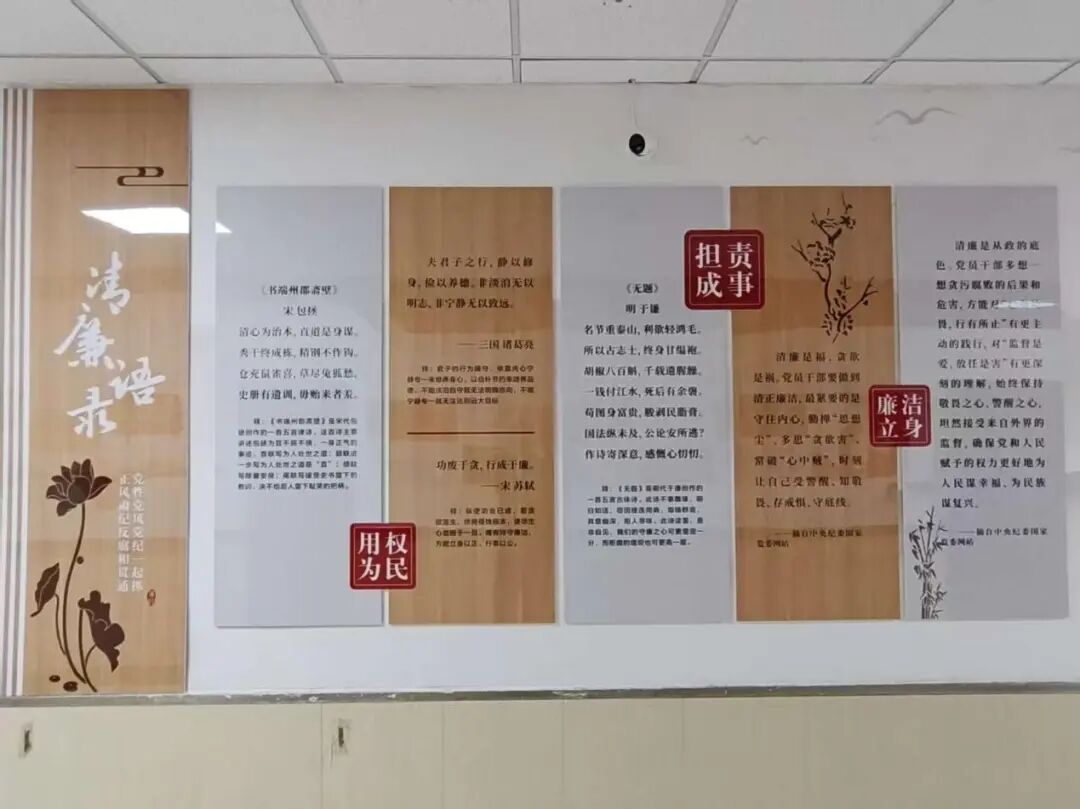 清廉语录
党性党风党纪一起抓
正风肃纪反腐相贯通
《书端州郡斋壁》
宋 包拯
清心为治本，直道是身谋。
秀干终成栋，精钢不作钩。
仓充鼠雀喜，草尽兔狐愁。
史册有遗训，毋贻来者羞。
释：《书端州郡斋壁》是宋代包
拯创作的一首五言律诗。
用权
为民
夫君子之行，静以修
身，俭以养德。非淡泊无以
明志，非宁静无以致远。
——三国 诸葛亮
功废于贪，行成于廉。
——宋 苏轼
《无题》
明 于谦
名节重泰山，利欲轻鸿毛。
所以古志士，终身甘缊袍。
胡椒八百斛，千载遗腥臊。
一钱付江水，死后有余褒。
苟图身富贵，朘剥民脂膏。
国法纵未及，公论安所逃？
作诗寄深意，感慨心忉忉。
释：《无题》是明代于谦创作的
一首五言古体诗。
担责
成事
清廉是福，贪欲
是祸。党员干部要做到
清正廉洁，最紧要的是
守住内心，勤掸“思想
尘”、多思“贪欲害”、
常破“心中贼”，时刻
让自己受警醒，知敬
畏、存戒惧、守底线。
——摘自中央纪委国家
监委网站
廉洁
立身
清廉是从政的底
色。党员干部多想一
想贪污腐败的后果和
危害，方能对
畏，行有所止”有更主
动的践行，对“监督是
爱，放任是害”有更深
刻的理解，始终保持
敬畏之心、警醒之心，
坦然接受来自外界的
监督，确保党和人民
赋予的权力更好地为
人民谋幸福、为民族
谋复兴。
——摘自中央纪委国家
监委网站